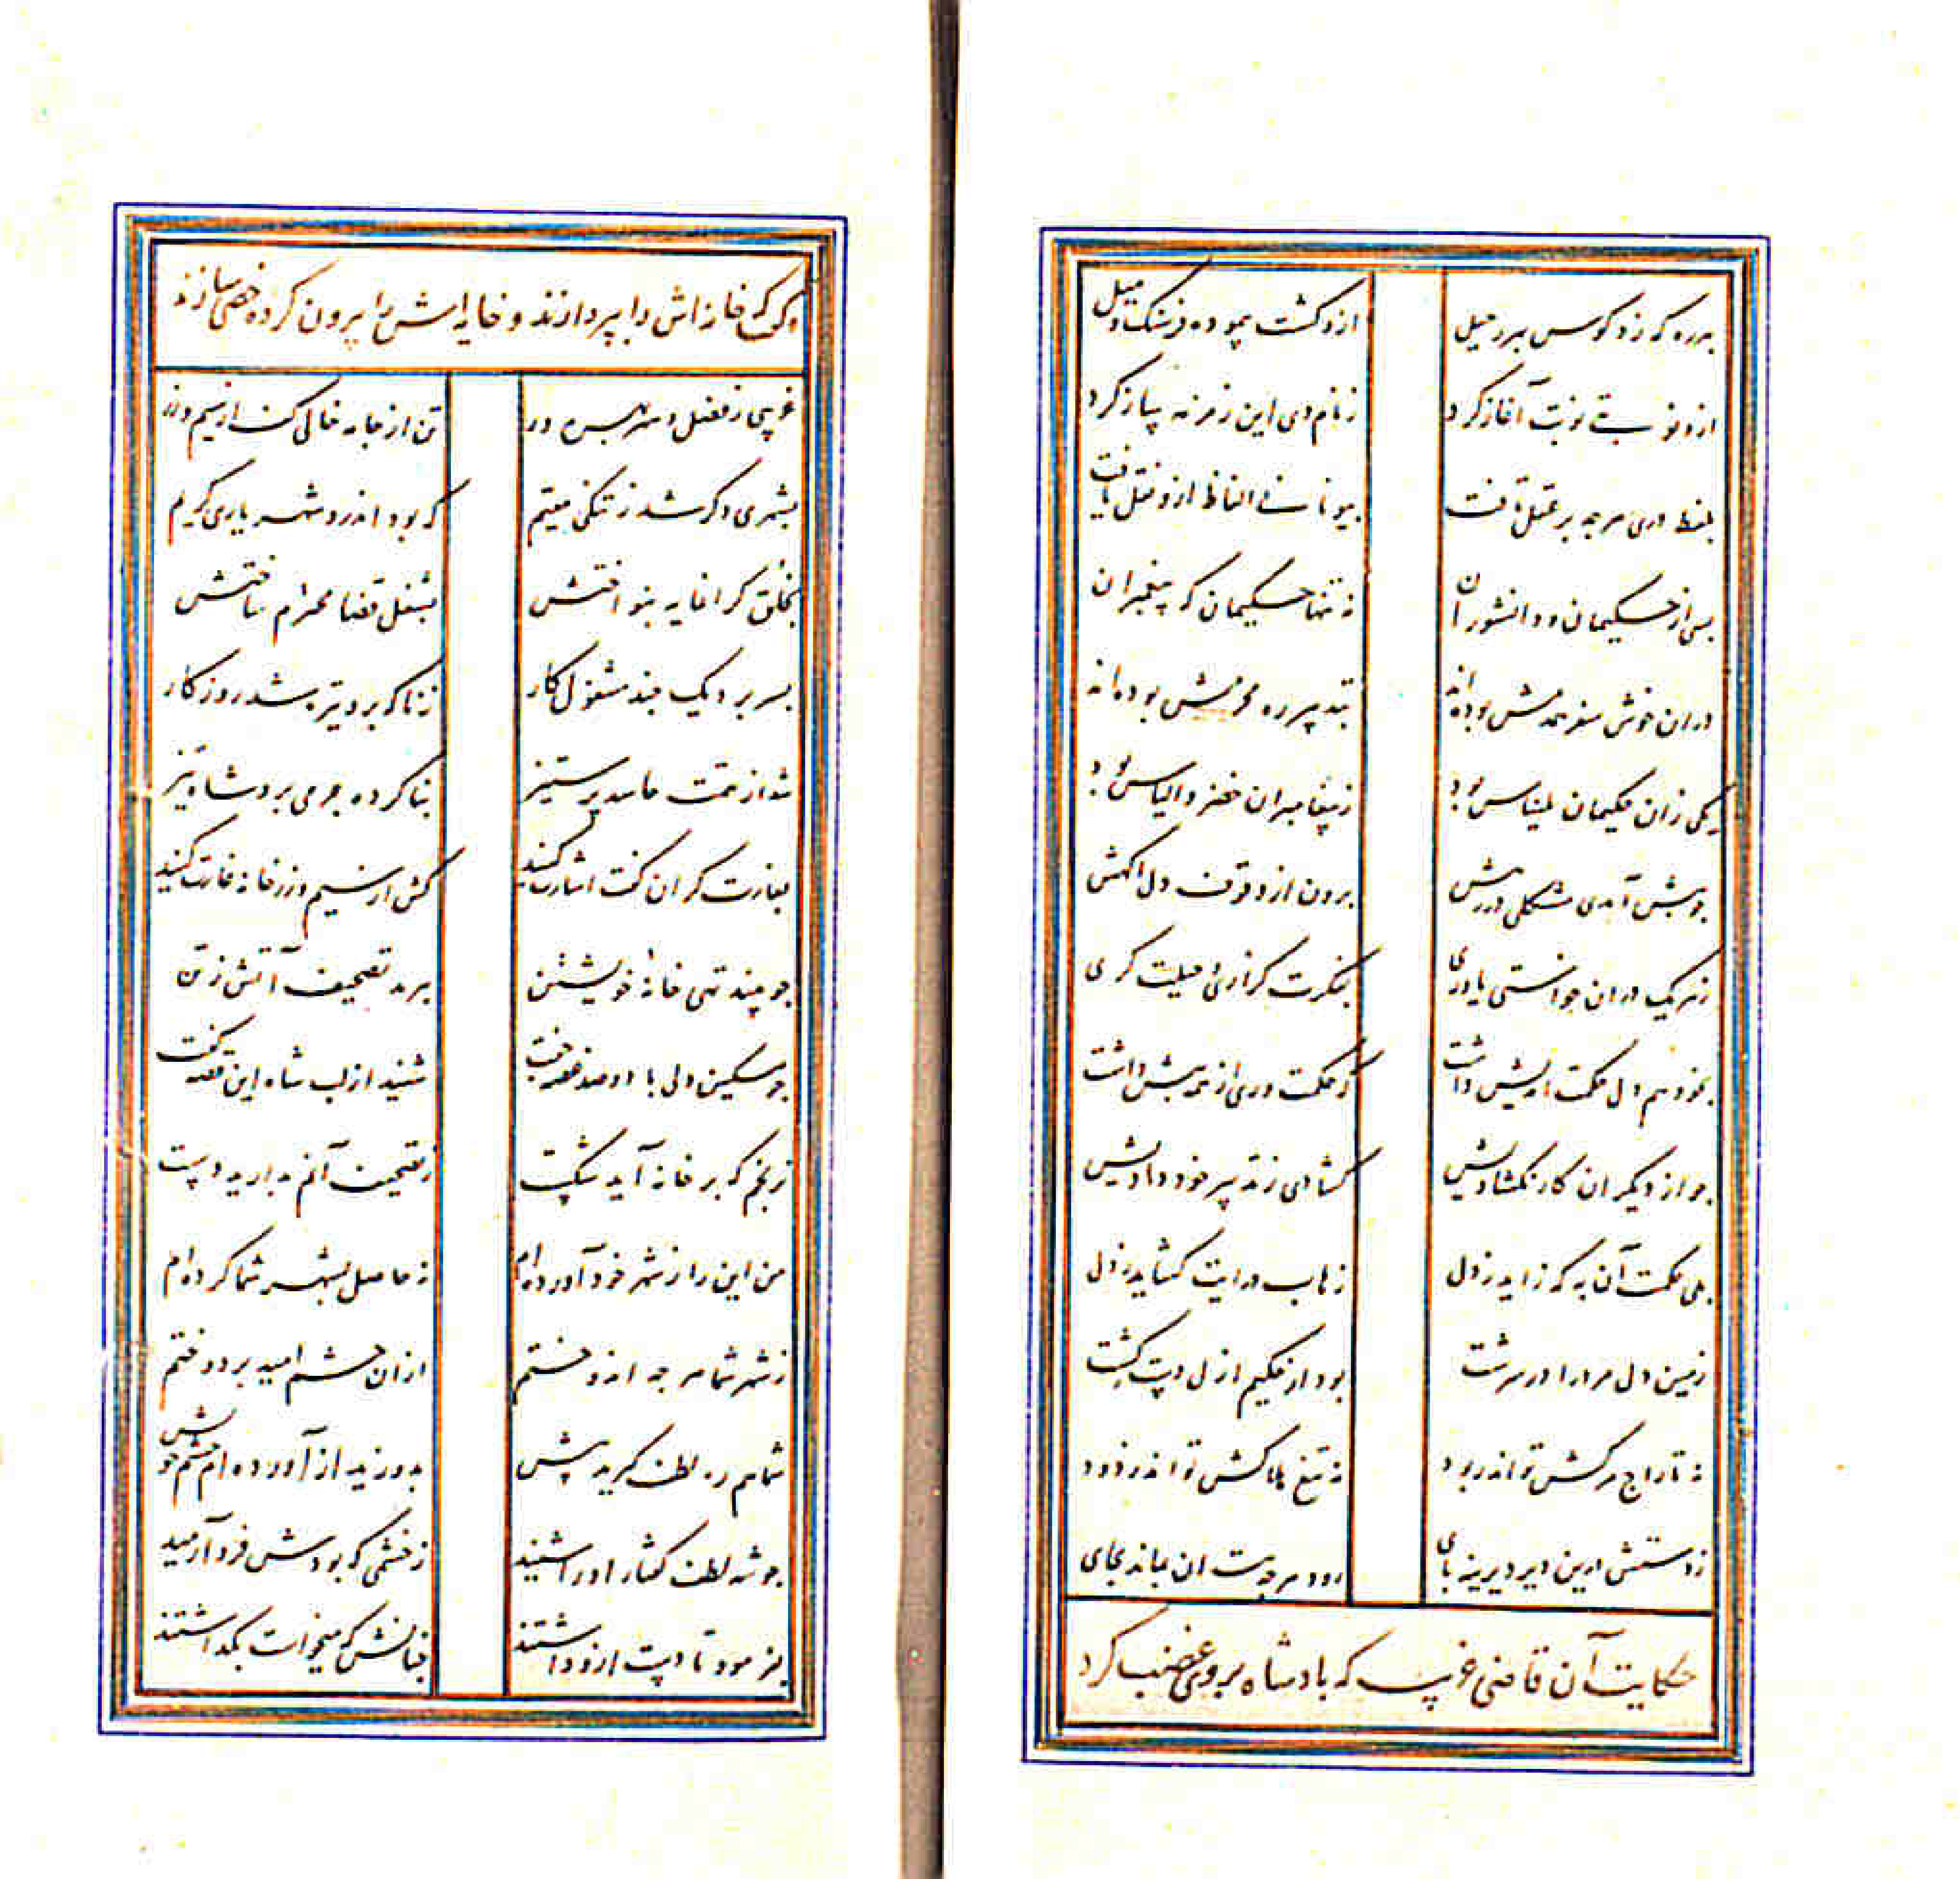 بهر ره که زد کوس بهر رحیل
ازو گشت پیموده فرسنک و میل
ازو نوبتی نوبت آغاز کرد
ز نام وی این زمزمه ساز کرد
بلفظ دری هرچه بر عقل تافت
بیونانی الفاظ ازو نقل یافت
بسی از حکیمان و دانشوران
نه تنها حکیمان که پیغمبران
در ان خوش سفر همدمش بوده‌اند
بتدبیر ره محرمش بوده‌اند
یکی زان حکیمان بلیناس بود
ز پیغامبران خضر و الیاس بود
چو پیش آمدی مشکلی در رهش
برون از وقوف دل اکهش
ز هر یک در ان خواستی یاوری
بفکرت کزاری و حیلت کری
بخود هم دل حکمت اندیش داشت
که حکمت وری از همه پیش داشت
چو از دیکران کار نکشادیش
کشادی ز تدبیر خود دادیش
بلی حکمت آن به که زاید ز دل
زهاب درایت کشاید ز دل
زمین دل مرد را در سرشت
بود از حکیم ازل دست کشت
نه تاراج مرکش تواند ربود
نه تیغ هلاکش تواند درود
ز دستش درین دیر دیرینه پای
رود هرچه هست ان بماند بجای
حکایت آن قاضی غریب که پادشاه بر وی غضب کرد
و گفت خانه‌اش را بپردازند و خایه‌اش را بیرون کرده خصی سازند
غریبی ز فضل و هنر بهره ور
تن از جامه خالی کف از سیم و زر
بشهری دکر شد ز تنکی مقیم
که بود اندرو شهریاری کریم
بخلق کرانمایه بنواختش
بشغل قضا محترم ساختش
بسر برد یک چند مشغول کار
ز ناکه برو تیره شد روزکار
شد از تهمت حاسد پر ستیز
بناکرده جرمی برو شاه تیز
بغارت کران کفت اشارت کنید
کش از سیم و زر خانه غارت کنید
چو بیند تهی خانهٔ خویشتن
برید تصحیف آتش ز تن
چو مسکین دلی با دو صد غصه جفت
شنید از لب شاه این قصه کفت
نرنجم که بر خانه آید شکست
ز تصحیف آنم بدارید دست
من این را ز شهر خود آورده‌ام
نه حاصل بشهر شما کرده‌ام
ز شهر شما هر چه اندوختم
ازان چشم امید بر دوختم
شما هم ره لطف کیرید پیش
بدوزید از آورده‌ام چشم خویش
چو شه لطف کفتار او را شنید
ز خشمی که بودش فرو آرمید
بفرمود تا دست ازو داشتند
چنانش که میخواست بکذاشتند